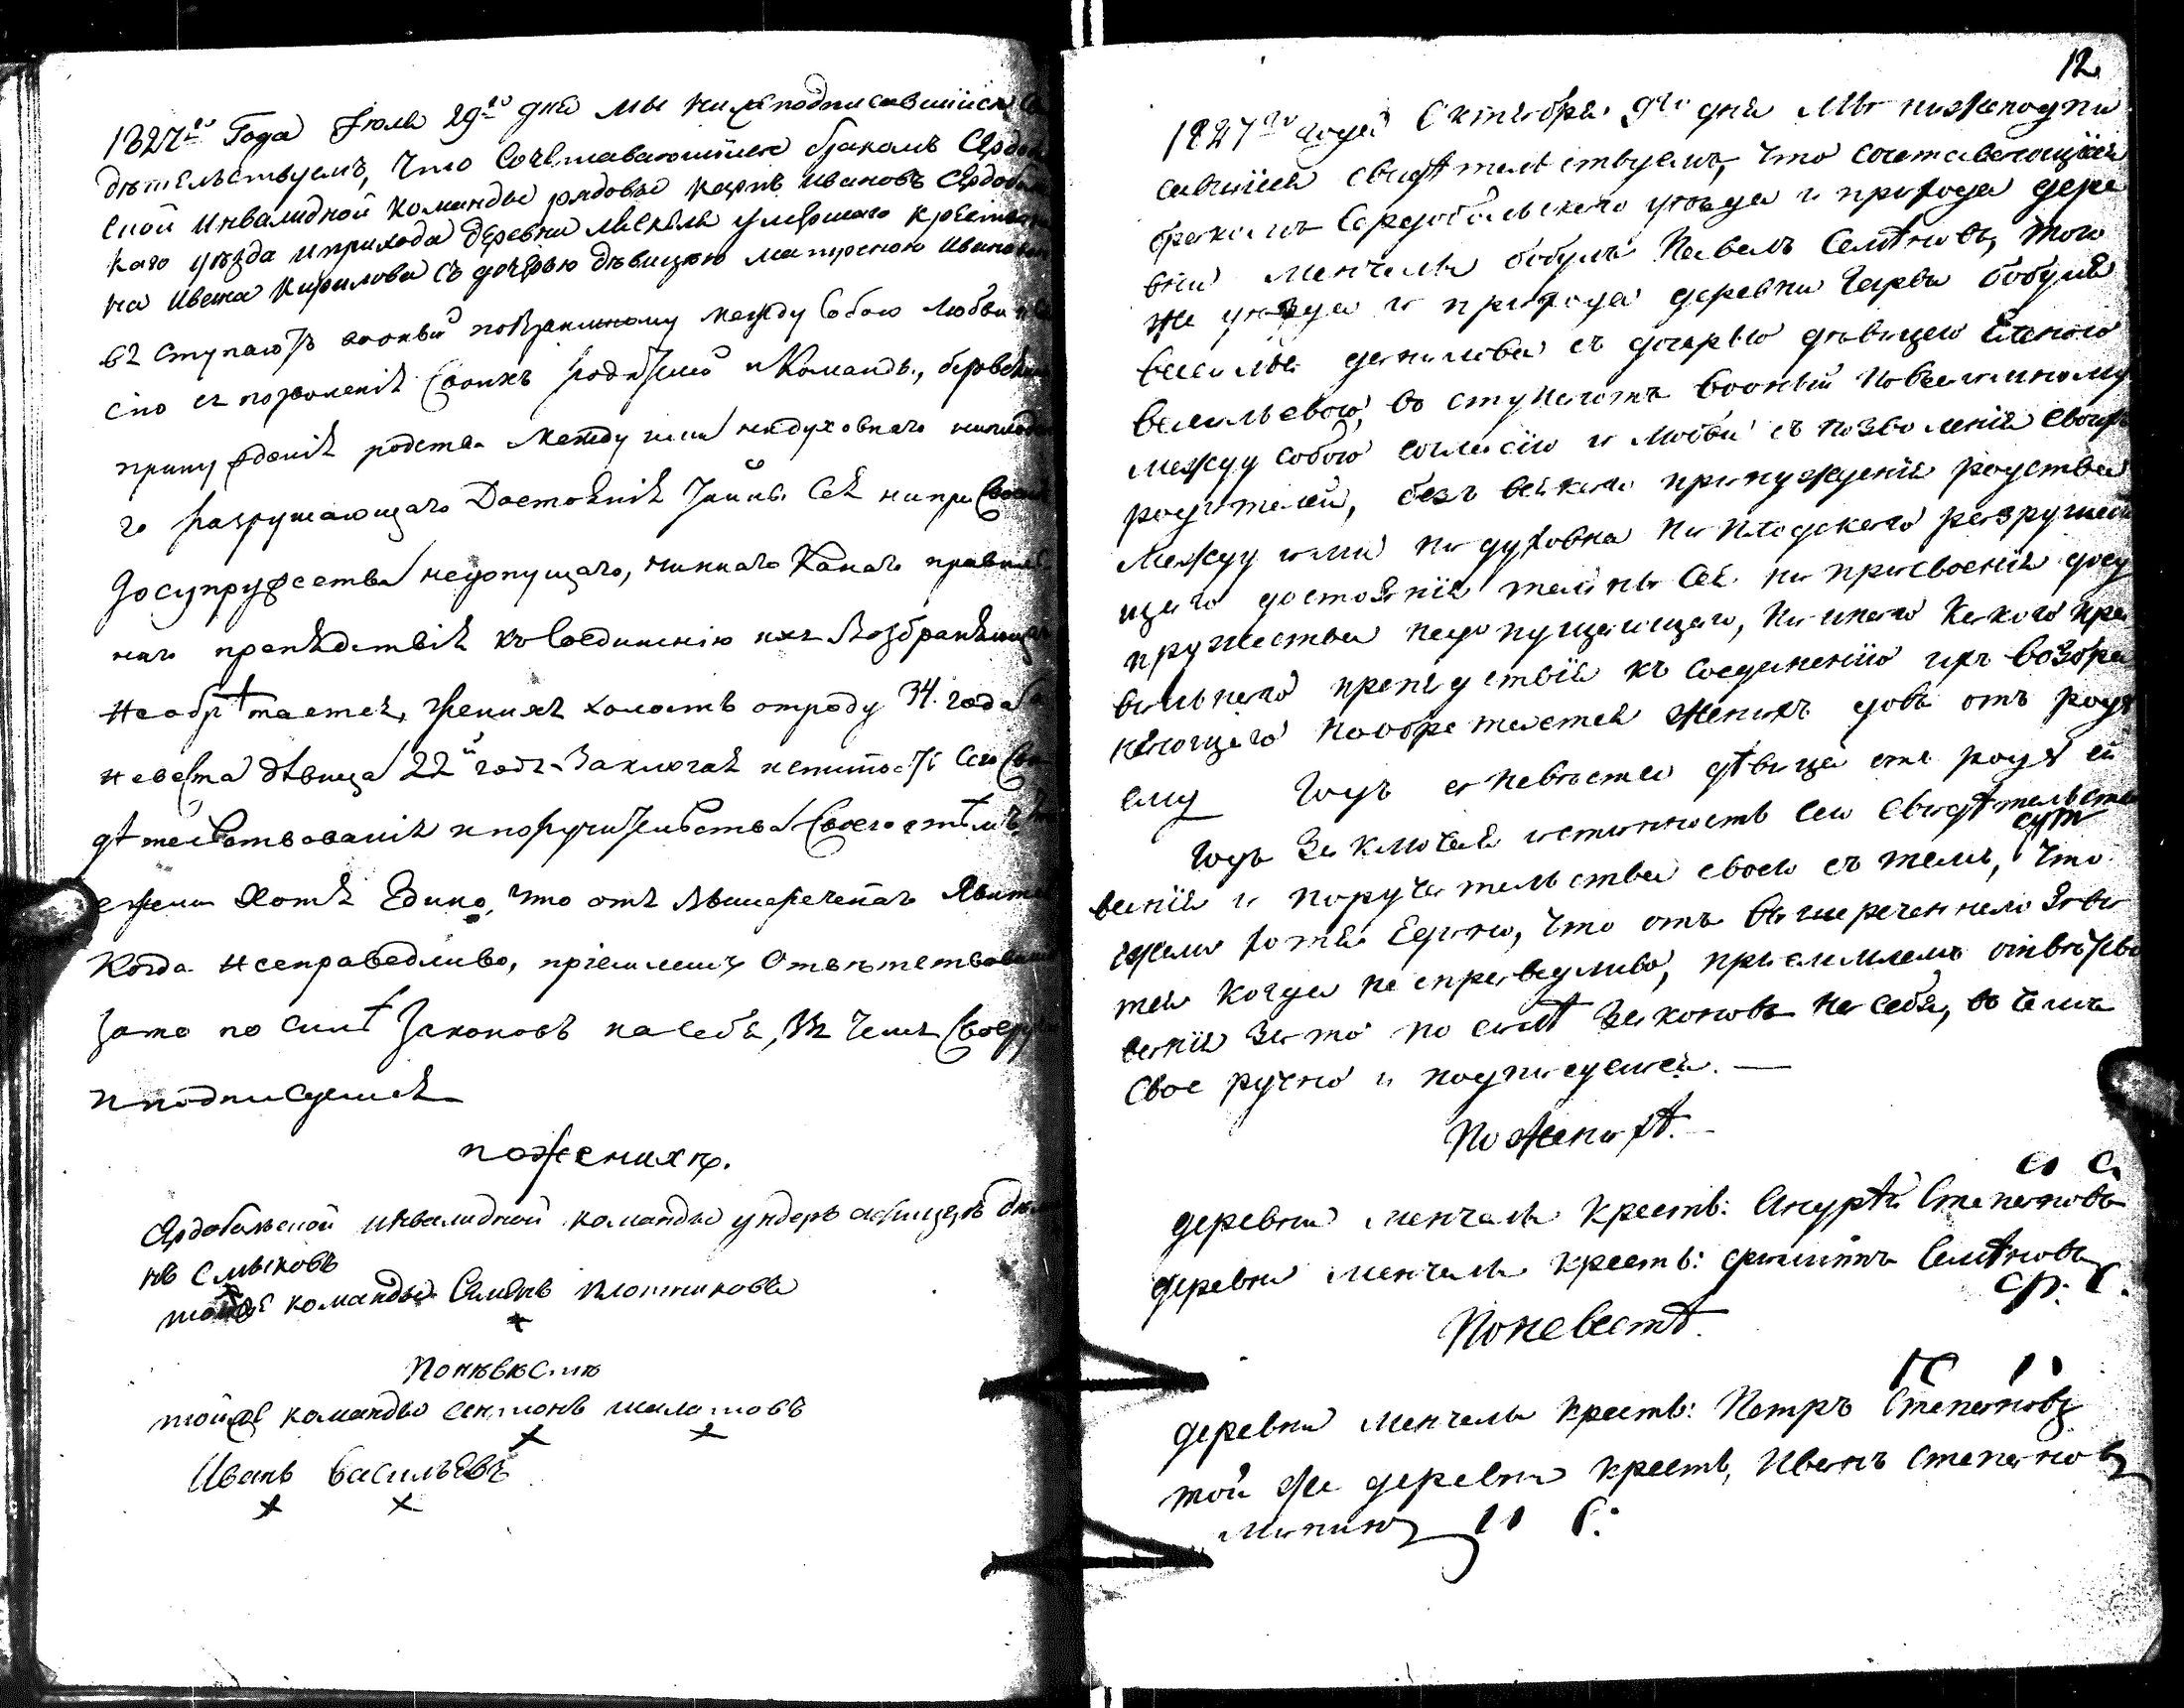 1827го Года Июля 29го дня мы нижеподписавшийся
дѣтельствуемъ, что Сочетавающійся бракомъ Сердо
ской Инвалидной Команды рядовые Карпъ Ивановъ Сердобол
каго уѣзда и прихода деревни умершаго Крестьяни
на Ивана Кирилова съ дочерью дѣвицею Матреною Иванов
въ ступаютъ вооный повзаимному между Собою любви
сію съ позволенія Своихъ родителей и Команды, безвсяк
принужденія родства между ими недуховнаго ниплод
го разрушающаго Достоянія Тайны Сея ниприсвоенія
досупружества недопущаго, нинаго Какаго правил
наго препядствія къ Соединенію ихъ возбраняющаго
необрѣтается, женихъ холостъ отроду 34. года
невеста дѣвица 22й годъ Заключая истинность Сего Сви
дѣтельствованія и поручительства Своего стѣмъ
ежели Хотя Едино, что отъ вышереченнаго Явится
Когда несправедливо, пріемлемъ Отвѣтствованіе
зато по силѣ Законовъ на себя, въ чемъ Своеру
и подписуемся
поженихѣ.
Сердобольской инвалидной команды ундеръ афицеръ
нъ Смыковъ
тойже команды Семенъ Плотниковъ
Поневѣстѣ
тойже команды Антонъ Шалатовъ
Иванъ Васильевъ
12.
1827го года Октября 9го дня Мы нижеподпи
савшійся свидѣтельствуемъ, что сочетавающійся
бракомъ Сердобольскаго уѣзда и прихода дере
вни бобуль Павелъ Семѣновъ, того
же уѣзда и прихода деревни бобуля
василья данилова съ дочерью дѣвицею Еленою
васильевою, во ступаютъ вооный Повзаимному
между собою согласію и любви съ позволенія своихъ
родителей, безъ всякаго принужденія родства
между ими ни духовна ни плодскаго разрушаю
щаго достоянія тайны Сея ни присвоенія досу
пружества недопущающаго, ни инаго Какого пра
вильнаго препядствія къ соединенію ихъ возбра
няющаго необретается женихъ вдовъ отъ родя
ему годъ а невѣста дѣвица отъ родя ей
годъ Заключая истинность сего свидѣтельство
ванія и поручательства своего съ темъ, что
ежели хотя Едино, что отъ вышереченнаго Яви
тся когда не справедливо, приемлемъ отвѣтство
ваніе за то по силѣ законовъ на себя, въ чемъ
свое ручно и подписуемся. —
По женихѣ.
А С
деревни крестъ: Андрѣй Степановъ
деревни крестъ: Семѣновъ
По невестѣ.
деревни крестъ: Петръ Степановъ
той же деревни крестъ, Иванъ Степановъ